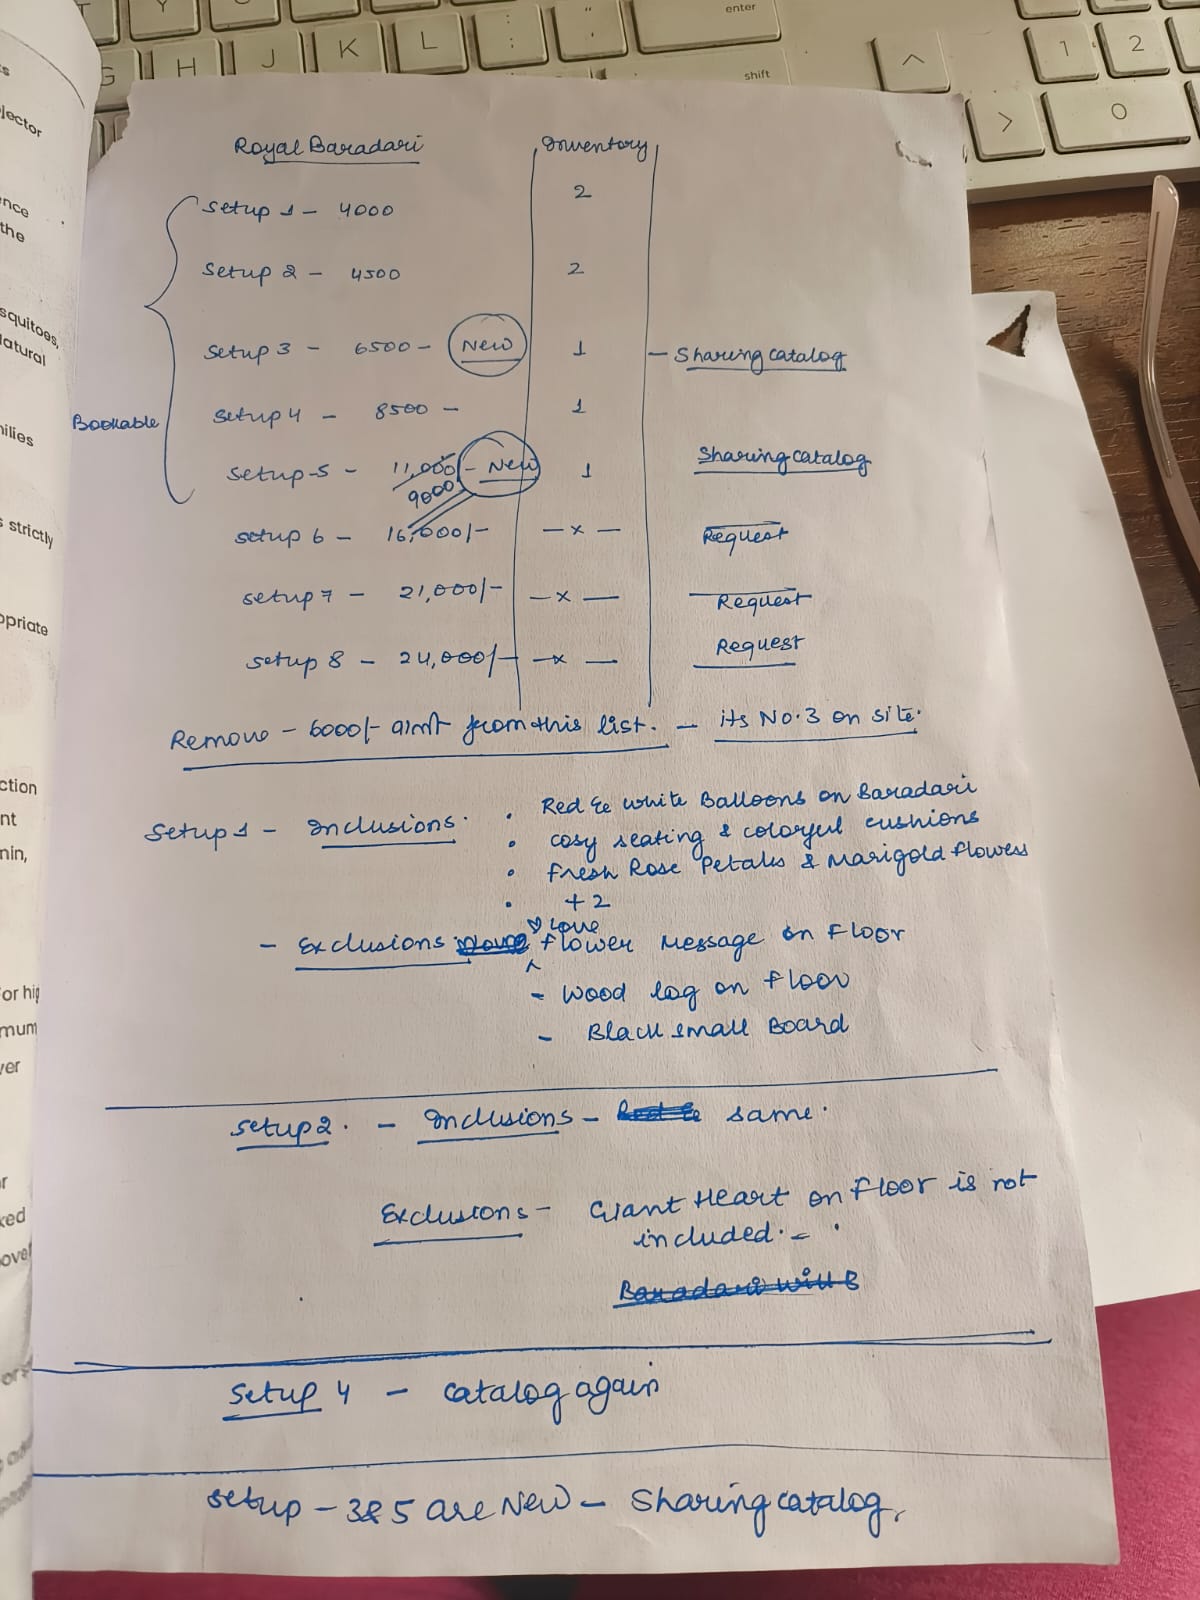 Royal Baradari Inventory
Setup 1 – 4000 2
Setup 2 – 4500 2
Setup 3 – 6500 – New 1 – Sharing catalog
Bookable
Setup 4 – 8500 – 1
Setup-5 – 11,000 – New 1 Sharing catalog
9000
Setup 6 – 16,000/- – x – Request
Setup 7 – 21,000/- – x – Request
Setup 8 – 24,000/- – x – Request
Remove – 6000/- aimt from this list. – its No.3 on site.
Setup 1 – Inclusions. • Red & white Balloons on Baradari
• cosy seating & colorful cushions
• Fresh Rose Petals & Marigold flowers
• +2
♡ Love
– Exclusions Flower Message on Floor
– Wood log on floor
– Black small Board
Setup 2. – Inclusions – same.
Exclusions – Giant Heart on Floor is not
included. –
Baradari will B
Setup 4 – catalog again
Setup – 3&5 are New – Sharing catalog.
enter
shift
G H J K L
1 2
0
jector
ence
the
squitoes,
Natural
milies
s strictly
opriate
ction
nt
min,
or hig
mum
ver
or
ked